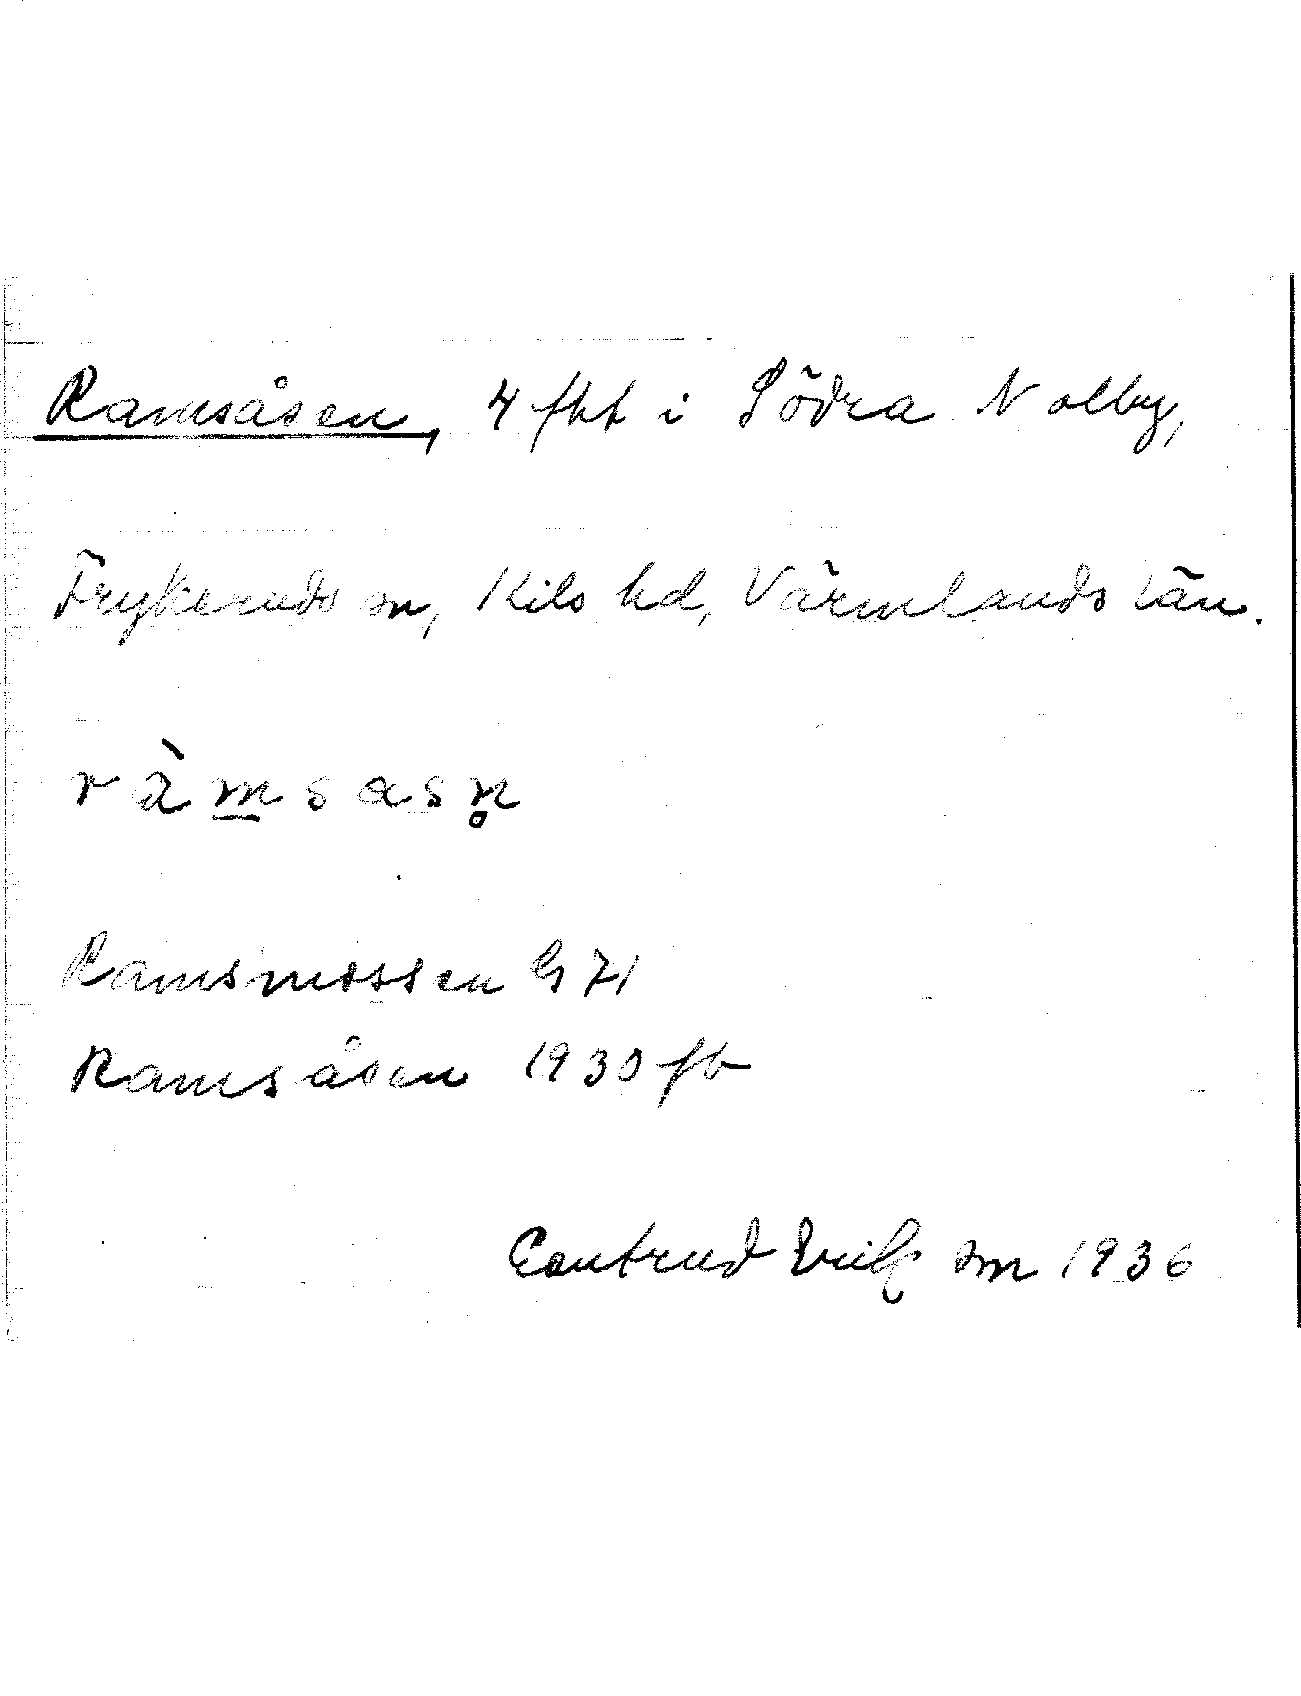 Ramsåsen, 4 fht i Södra Nolby,
Frykeruds sn, Kils hd, Värmlands län.
ràm̲sasn̥
Ramsmossen G 71
Ramsåsen 1930 fb
sm 1936